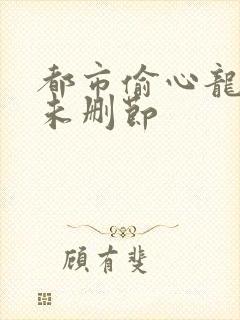 都市偷心龍
未删節
顧有斐